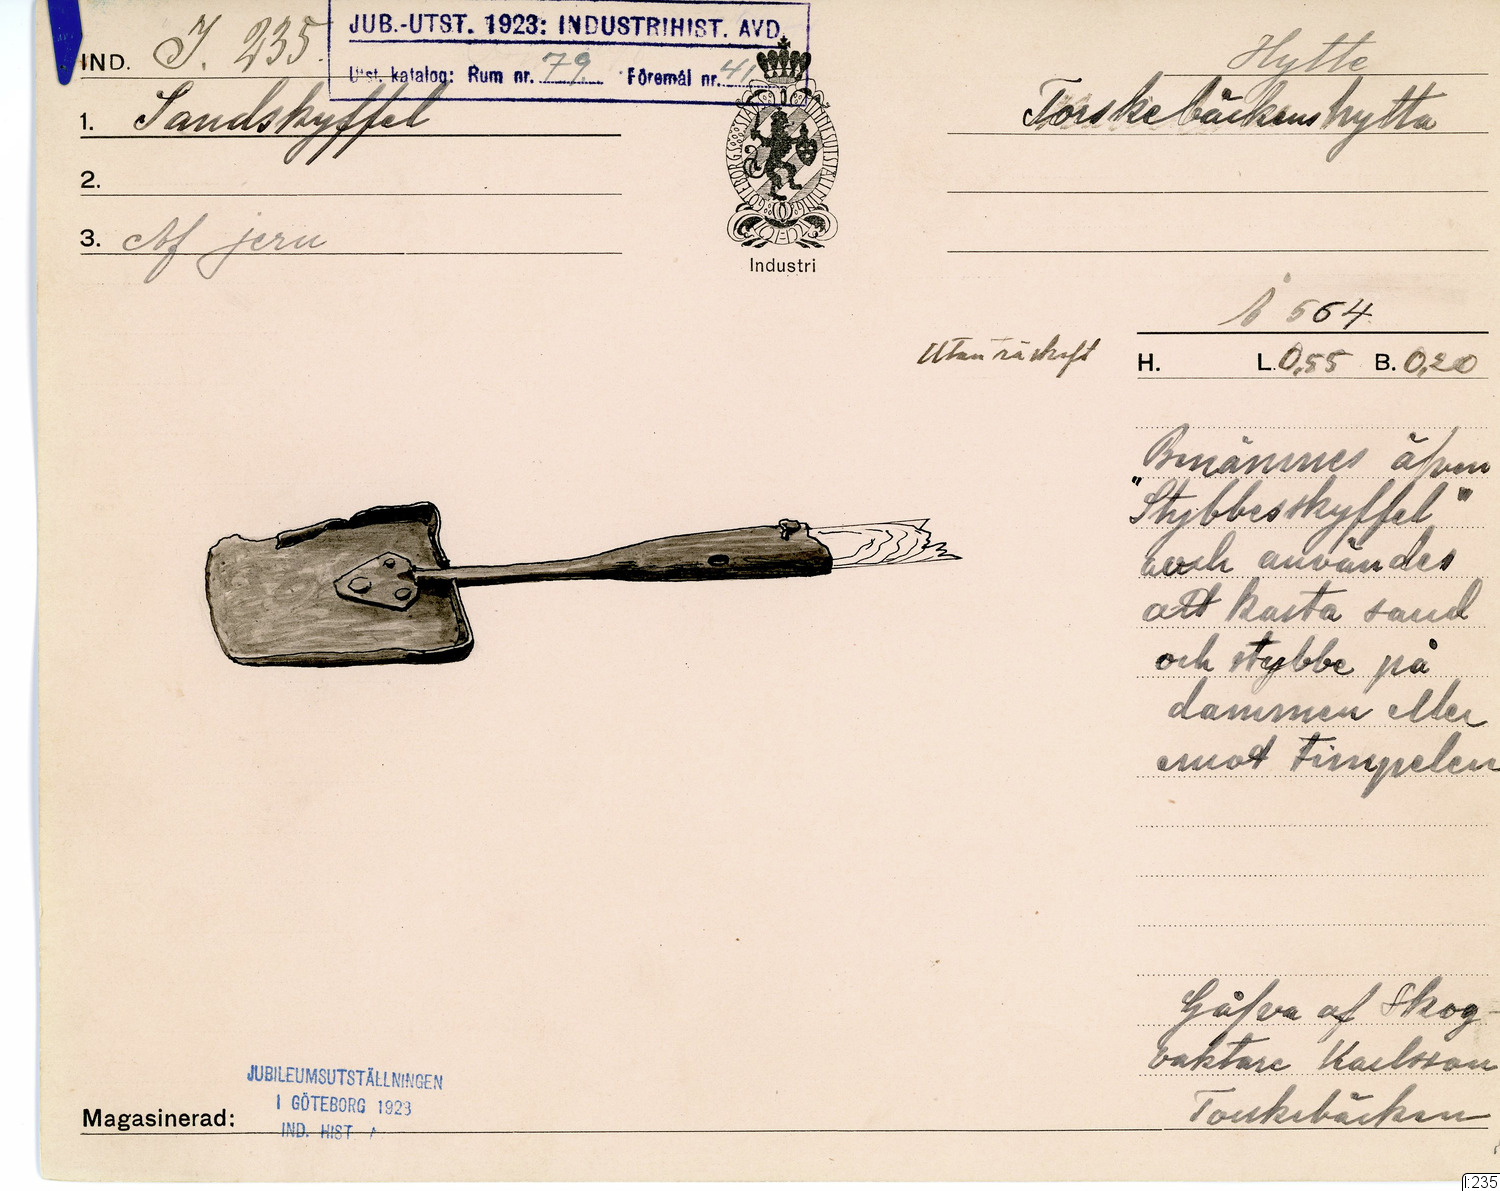 JUB.-UTST. 1923: INDUSTRIHIST. AVD.
Utst. katalog: Rum nr. 79. Föremål nr. 41
IND. I. 235.
Hytte
1. Sandskyffel
Torskebäckens hytta
2.
3. Af jern
GÖTEBORGS STADS JUBILEUMSUTSTÄLLNING
Industri
564
Utan träskaft
H. L. 0,55 B. 0,20
Benämnes äfven
"Stybbesskyffel"
och användes
att kasta sand
och stybbe på
dammen eller
emot timpelen
Gåfva af Skog-
vaktare Karlsson
Torskebäcken
JUBILEUMSUTSTÄLLNINGEN
I GÖTEBORG 1923
IND. HIST A
Magasinerad:
I:235